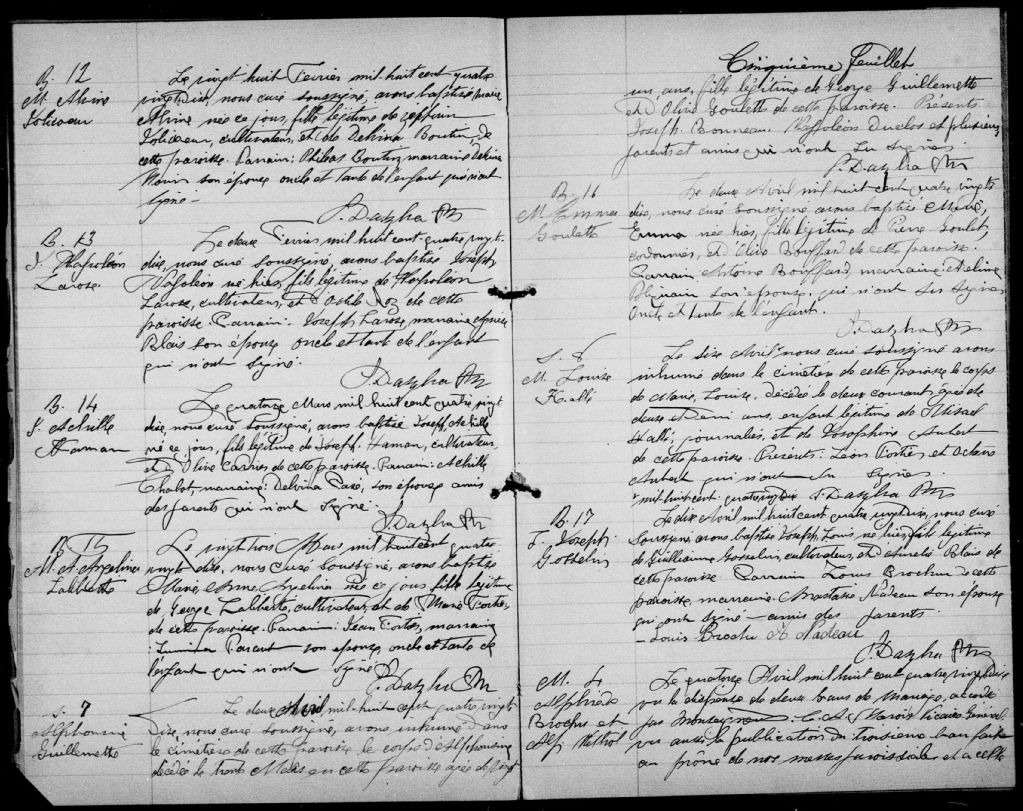 B. 12
M. Alvine
Lolicoeur
Le vingt huit Fevrier mil-huit cent quatre
vingt dix, nous curé soussigné, avons baptisé Marie
Alvine née ce jour, fille légitime de
cultivateur, et de Delvina Boutin, de
cette paroisse. Parrain: Phileas Boutin, marraine Delvina
Morin son épouse oncle et tante de l'enfant qui n'ont
signé -
B. 13
J. Napoléon
Larose
Le deux Fevrier mil huit cent quatre vingt
dix, nous curé soussigné, avons baptisé Joseph,
Napoléon né hier, fils légitime de Napoléon
Larose, cultivateur, et d'Odile Roy de cette
paroisse. Parrain: Joseph Larose, marraine
Blais son épouse oncle et tante de l'enfant
qui n'ont signé.
B. 14
J. Achille
Haman
Le quatorze Mars mil huit cent quatre vingt
dix, nous curé soussigné, avons baptisé Joseph, Achille
né ce jour, fils légitime de Joseph Hamon, cultivateur
et d'Olive Carrier de cette paroisse. Parrain: Achille
Chabot, marraine: Delvina Paré, son épouse amis
des parents qui n'ont signé.
B. 15
M. A. Angelina
Laliberté
Le vingt trois Mars mil huit cent quatre
vingt dix, nous Curé soussigné, avons baptisé
Marie, Anne, Angelina née ce jour fille légitime
de George Laliberté, cultivateur, et de Marie Fortier,
de cette paroisse. Parrain: Jean Fortier, marraine
Parent son épouse, oncle et tante de
l'enfant qui n'ont signé
S. 7
Alphonsine
Guillemette
Le deux Avril mil-huit cent quatre vingt
dix, nous curé soussigné, avons inhumé dans
le cimetière de cette paroisse le corps d'Alphonsine
décédée le trente Mars en cette paroisse agée de vingt
Cinquième feuillet
un ans, fille légitime de George Guillemette
et d'Olive Goulette de cette paroisse. Présents
Joseph Bonneau, Napoléon Duclos et plusieurs
parents et amis qui n'ont su signer.
B. 16
M. Emma
Goulette
Le deux Avril mil huit cent quatre vingt
dix, nous curé soussigné avons baptisé Marie,
Emma née hier, fille légitime de Pierre Goulet,
cordonnier, et d'Olive Bouffard de cette paroisse.
Parrain Antoine Bouffard, marraine Adeline
son épouse, qui n'ont su signer
Oncle et tante de l'enfant.
S. 8
M. Louise
Hallé
Le dix Avril nous curé soussigné avons
inhumé dans le cimetière de cette paroisse le corps
de Marie, Louise, décédée le deux courant, agée de
deux et demi ans, enfant légitime de Misael
Hallé, journalier, et de Josephine Aubert
de cette paroisse. Présents: Léon Fortier et Octave
Aubert qui n'ont su signer.
mil huit cent quatre vingt dix
B. 17
J. Joseph
Gosselin
Le dix Avril mil huit cent quatre vingt dix, nous curé
soussigné avons baptisé Joseph, Louis né hier, fils légitime
de Guillaume Gosselin, cultivateur, et d'Aurelie Blais de
cette paroisse Parrain Louis Brochu de cette
paroisse, marraine: Anastasie Nadeau son épouse
qui ont signé - amis des parents.
- Louis Brochu A. Nadeau
M. 4
Alphrède
Brochu et
Alp.
Le quatorze Avril mil huit cent quatre vingt dix
vu la dispense de deux bans de mariage, accordé
par Monseigneur C. A. Marois Vicaire Général,
vu aussi la publication du troisieme ban faite
au prône de nos messes paroissiales et à celle